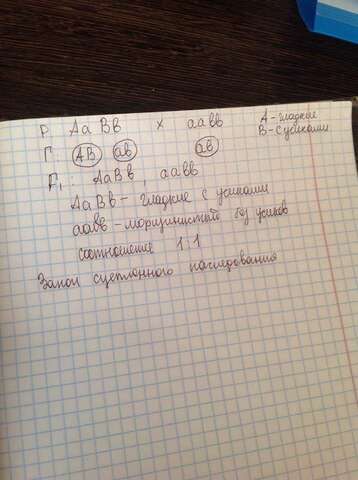 Р АаВв х аавв А - гладкие
В - с усиками
Г: АВ ав ав
F₁: АаВв, аавв
АаВв - гладкие с усиками
аавв - морщинистый без усиков
соотношение 1:1
Закон сцепленного наследования